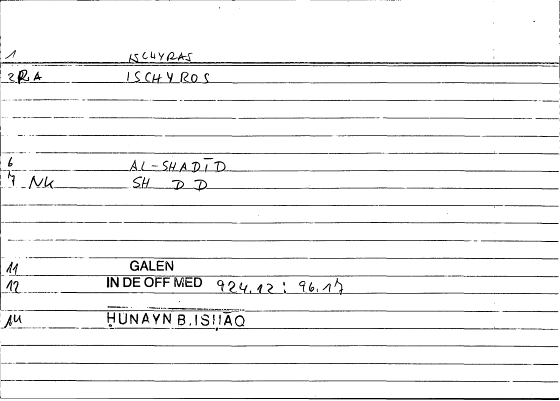 1 ISCHYRAS
2RA ISCHYROS
6 AL-SHADĪD
7 NK SH D D
11 GALEN
12 IN DE OFF MED 924.12 : 96.17
14 ḤUNAYN B.ISḤĀQ